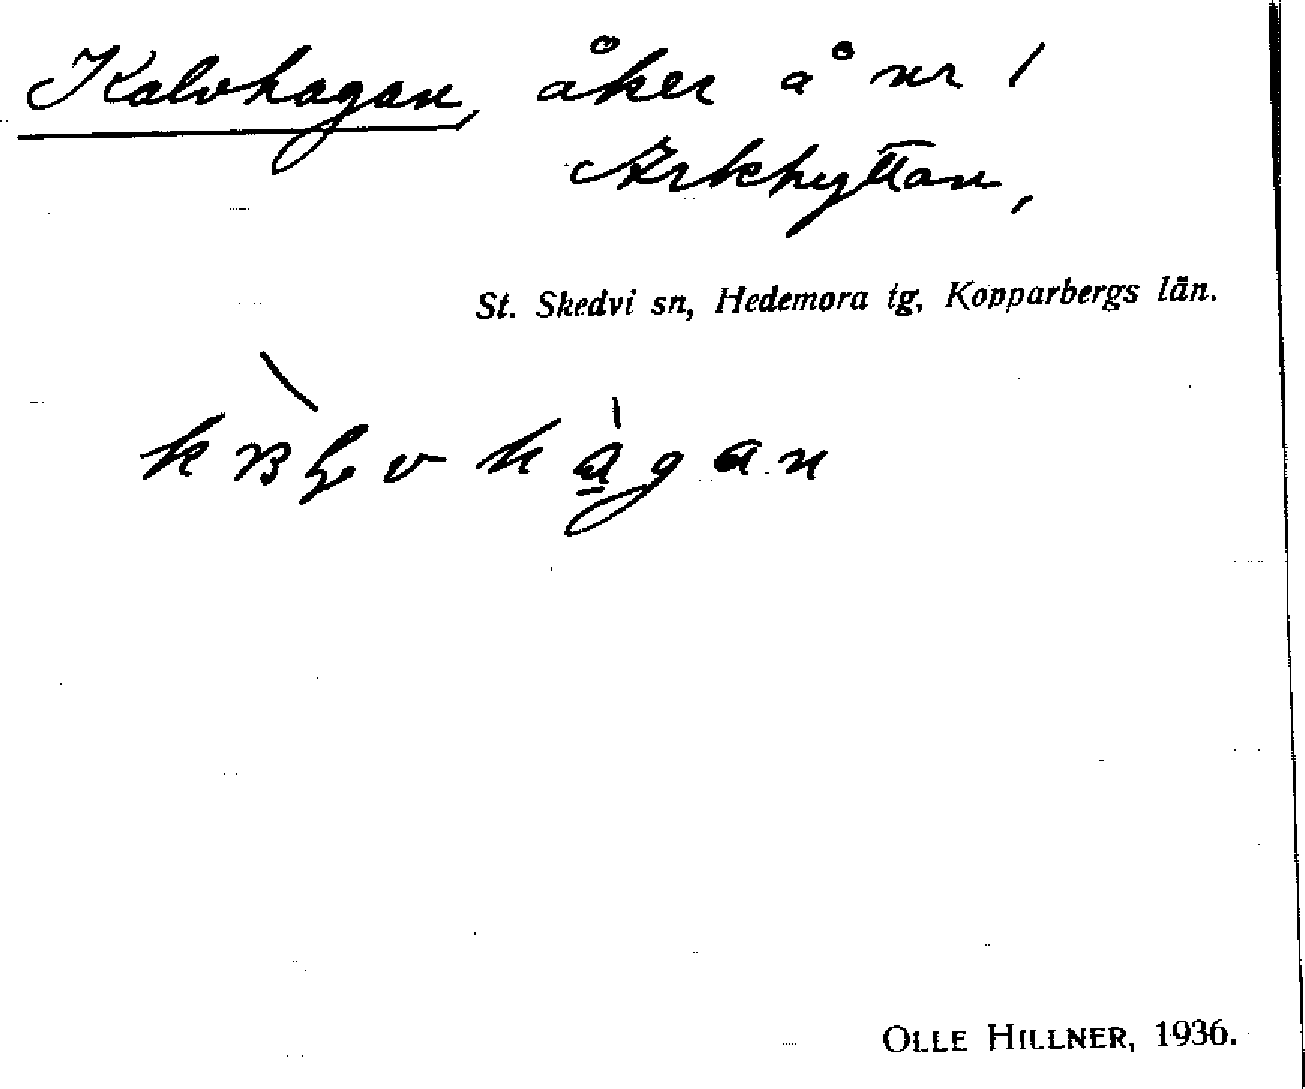 Kalvhagan, åker å nr 1
Arkhyttan,
St. Skedvi sn, Hedemora tg, Kopparbergs län.
OLLE HILLNER, 1936.